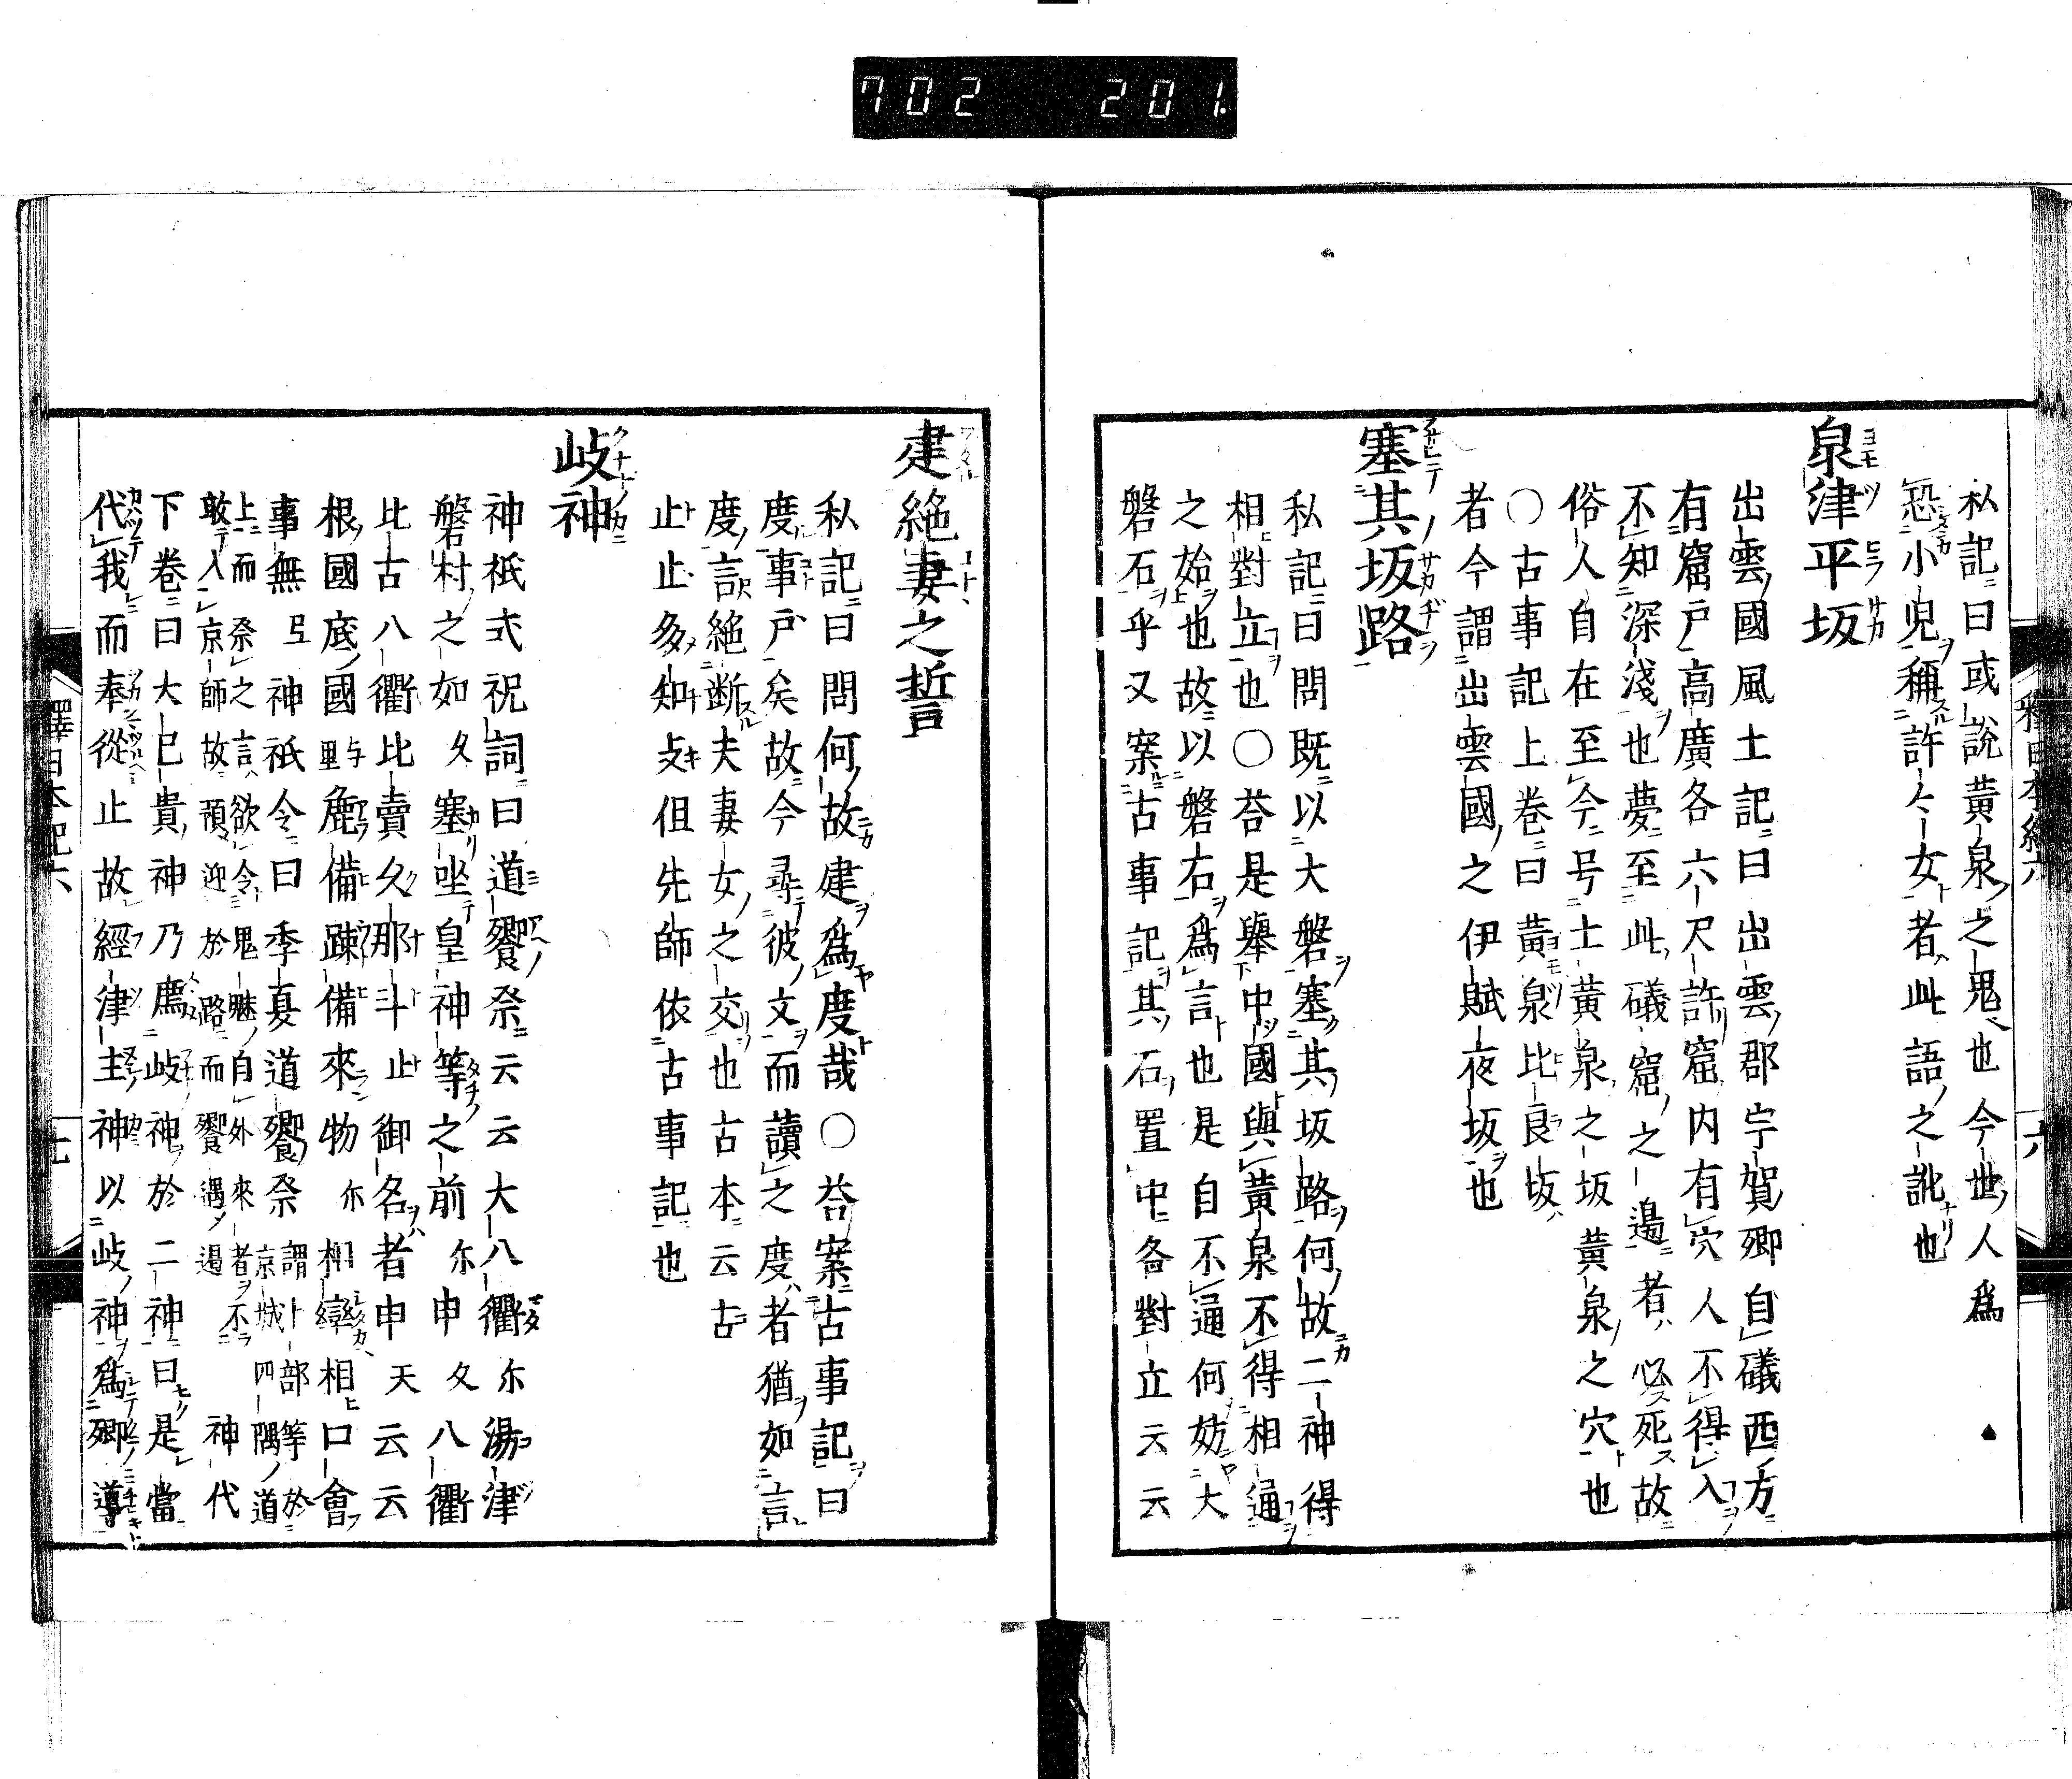 702 201.
私記曰或說黃泉之鬼也今世人爲
恐小兒稱許々女者此語之訛也
泉津平坂
出雲國風土記曰出雲郡宇賀郷自礒西方
有窟戶高廣各六尺許窟内有穴人不得入
不知深淺也夢至此礒窟之邊者必死故
俗人自在至今号士黃泉之坂黃泉之穴也
○古事記上卷曰黃泉比良坂
者今謂出雲國之伊賦夜坂也
塞其坂路
私記曰問既以大磐塞其坂路何故二神得
相對立也○荅是擧中國與黃泉不得相通
之始也故以磐石爲言也是自不通何妨大
磐石乎又案古事記其石置中各對立云云
建絶妻之誓
私記曰問何故建爲度哉○荅案古事記曰
度事戶矣故今尋彼文而讀之度者猶如言
度言絶断夫妻女之交也古本云古
止止多知攴但先師依古事記也
岐神
神祇式祝詞曰道饗祭云云大八衢尓湯津
磐村之如久塞坐皇神等之前尓申久八衢
比古八衢比賣久那斗止御名者申天云云
根國底國与里麁備疎備來物尓相率相口會
事無神祇令曰季夏道饗祭謂卜部等於京城四隅道
上而祭之言欲令鬼魅自外來者不
敢入京師故預迎於路而饗遏神代
下卷曰大已貴神乃薦岐神於二神曰是當
代我而奉從止故經津主神以岐神爲郷導
釋日本紀六
六
釋日本紀六
七